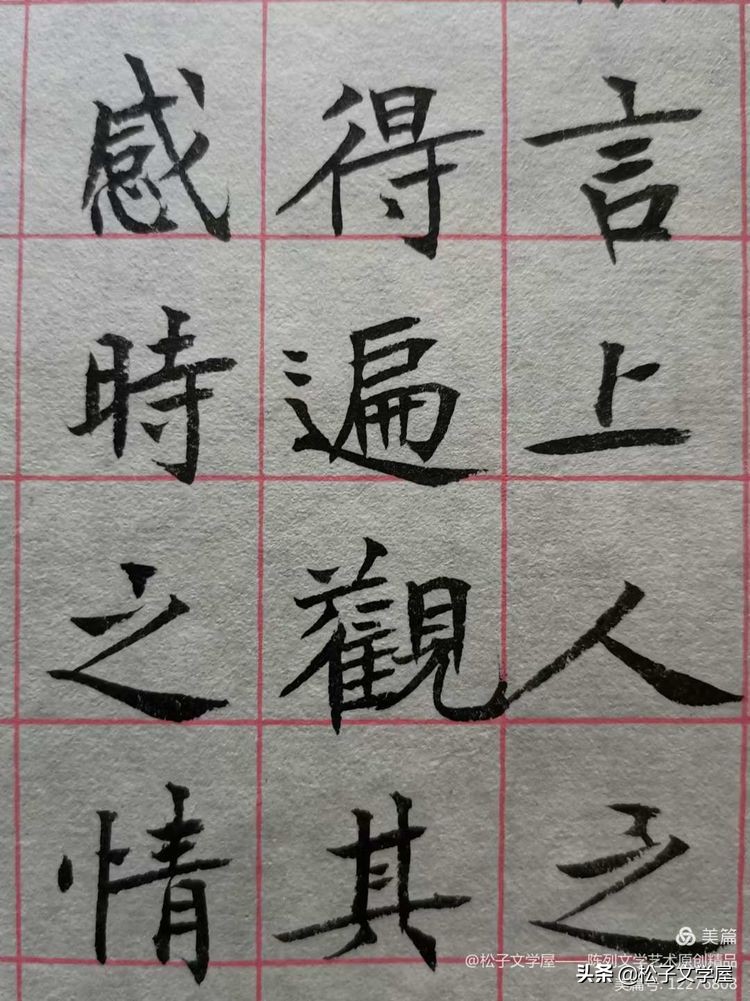 言上人之
得遍觀其
感時之情
美篇
@松子文学屋——陈列文学艺术原创精品
头条 @松子文学屋